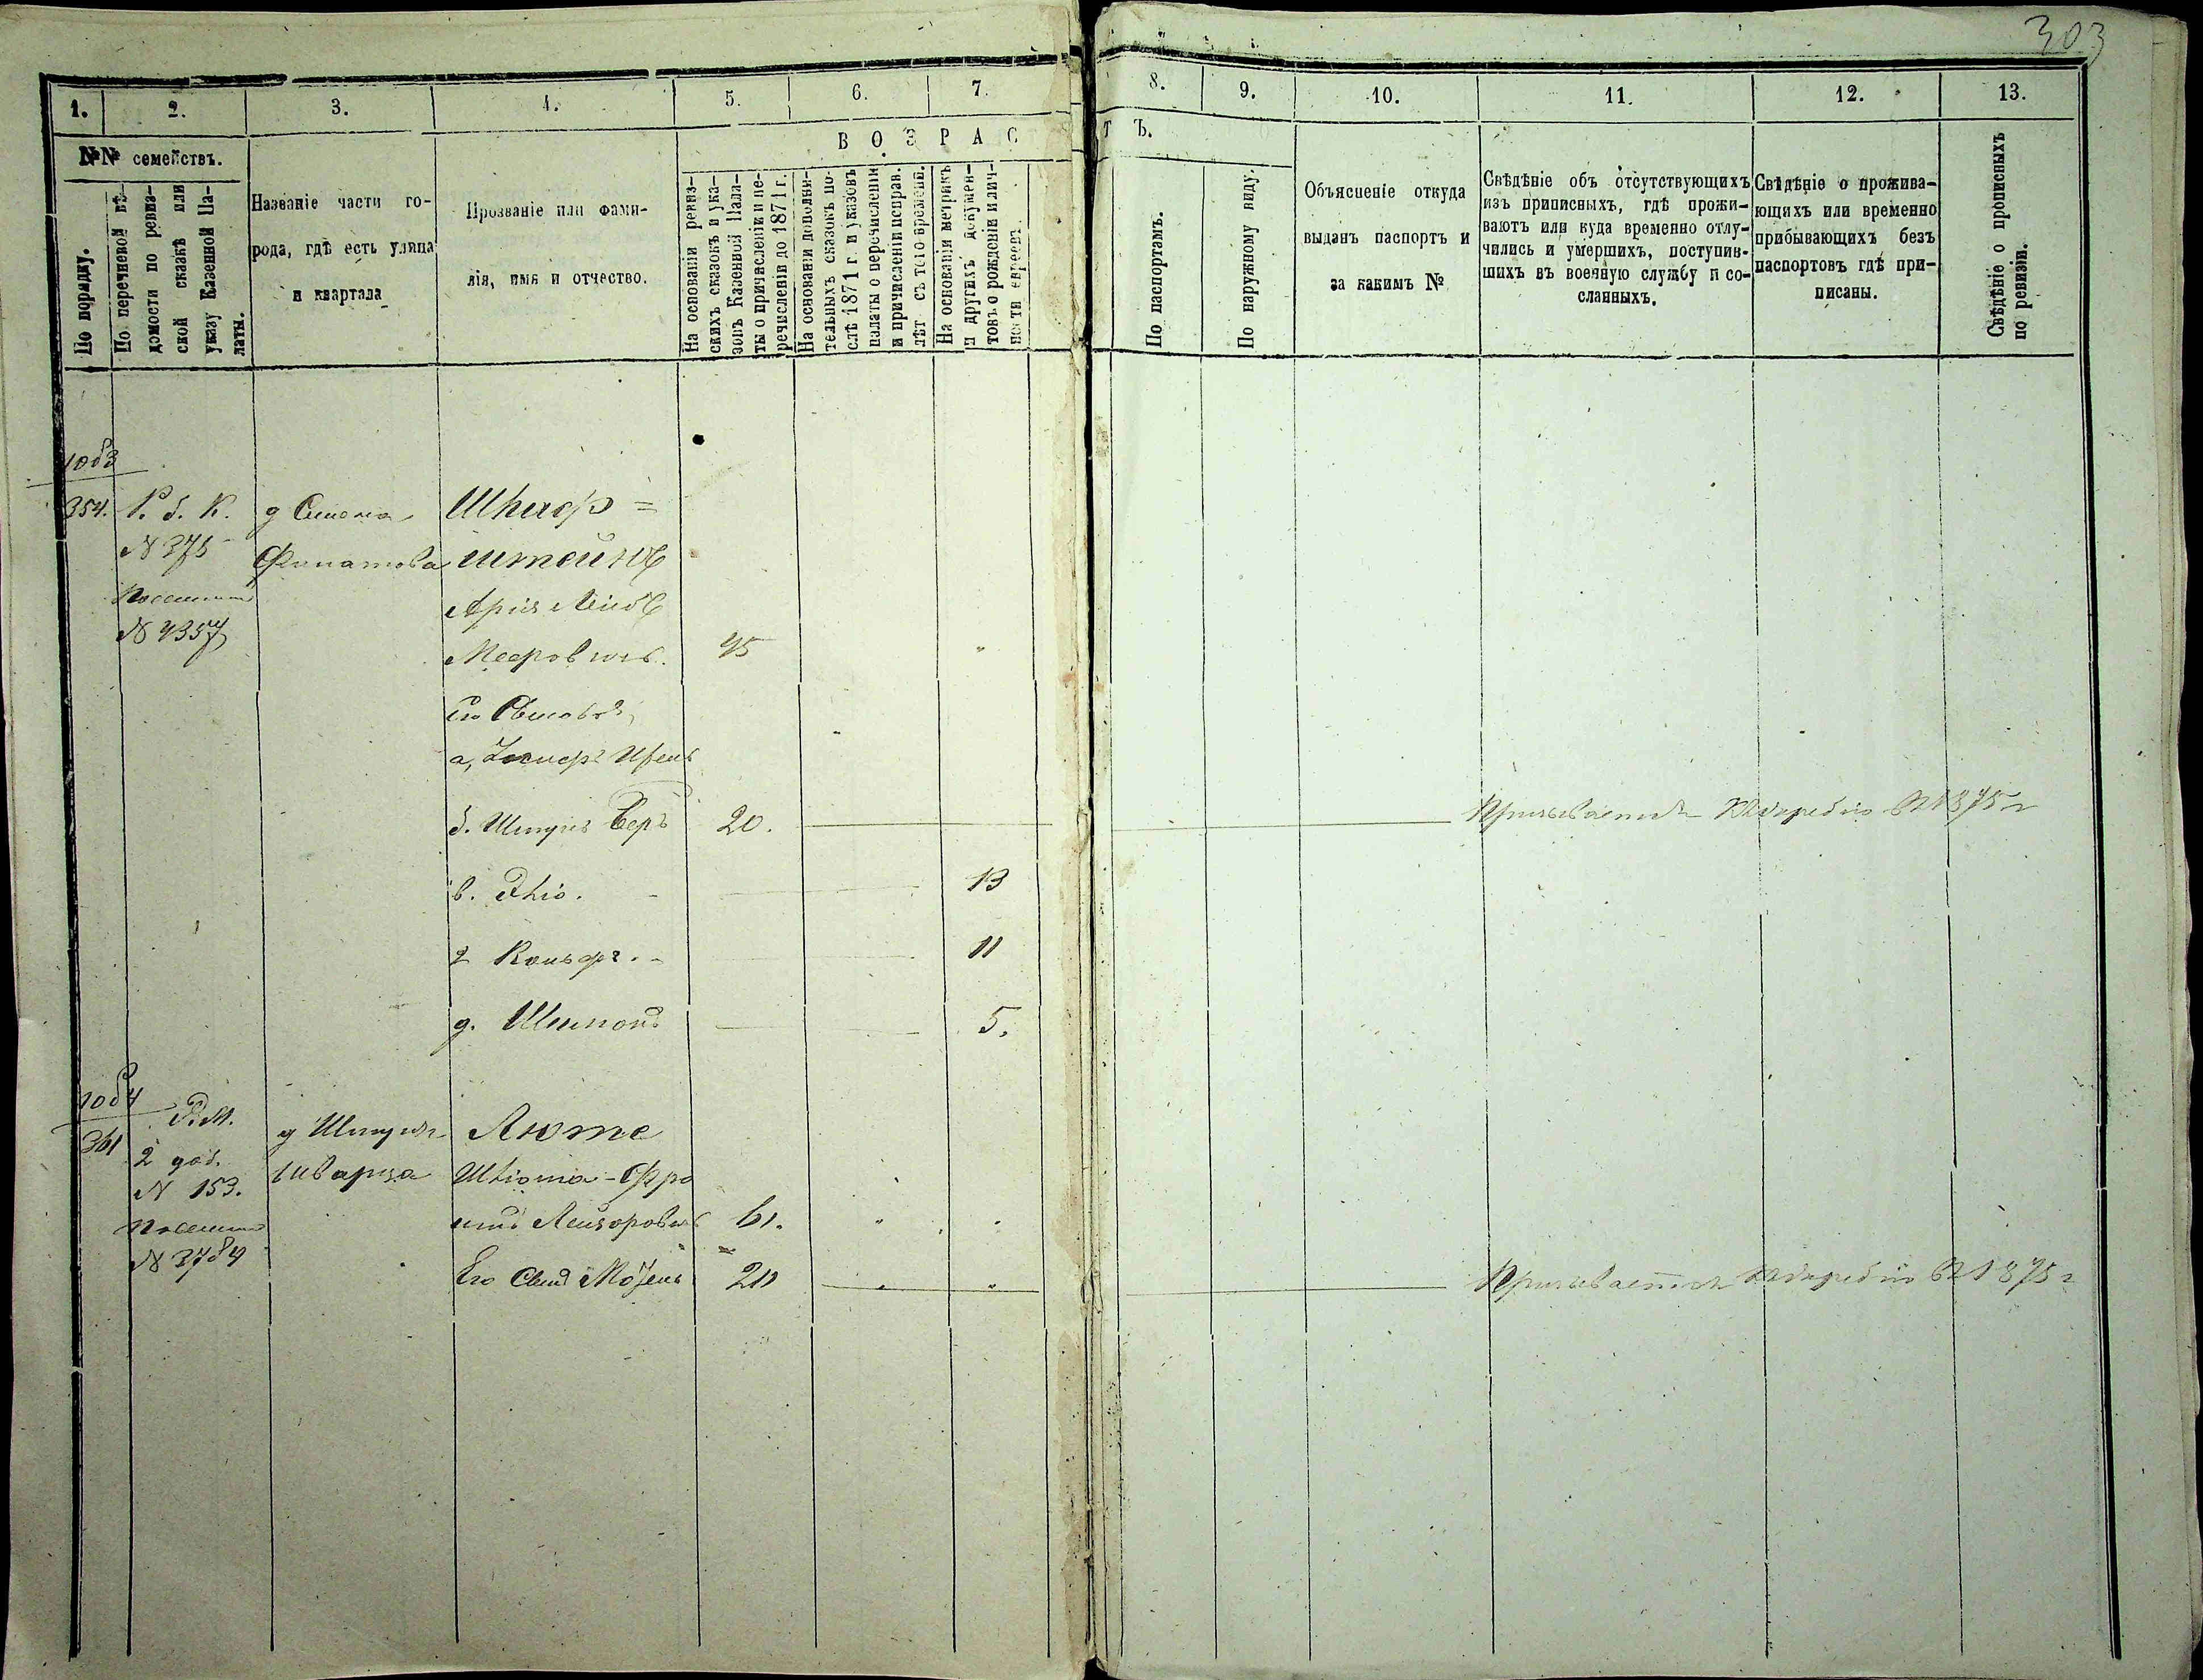 303
1. 2. 3. 4. 5. 6. 7. 8. 9. 10. 11. 12. 13.
№№ семействъ.
ВОЗРАСТЪ.
По порядку.
По перечневой вѣ-
домости по ревиз-
ской сказкѣ или
указу Казенной Па-
латы.
Названіе части го-
рода, гдѣ есть улица
и квартала
Прозваніе или фами-
лія, имя и отчество.
На основаніи ревиз-
скихъ сказокъ и ука-
зовъ Казенной Пала-
ты о причисленіи и пе-
речисленіи до 1871 г.
На основаніи дополни-
тельныхъ сказокъ по-
слѣ 1871 г. и указовъ
палаты о перечисленіи
и причисленіи исправ.
лѣт съ того времени.
На основаніи метрикъ
и другихъ докумен-
товъ о рожденіи и лич-
ности евреевъ.
По паспортамъ.
По наружному виду.
Объясненіе откуда
выданъ паспортъ и
за какимъ №
Свѣдѣніе объ отсутствующихъ
изъ приписныхъ, гдѣ прожи-
ваютъ или куда временно отлу-
чились и умершихъ, поступив-
шихъ въ военную службу и со-
сланныхъ.
Свѣдѣніе о прожива-
ющихъ или временно
прибывающихъ безъ
паспортовъ гдѣ при-
писаны.
Свѣдѣніе о прописныхъ
по ревизіи.
354. Р. б. К. д Симона
№ 375 Филатова штейнъ
Посемейн
№ 4357
Арія Лейбъ
Мееровичъ. 45
Его Сыновья
б. Шмуль Беръ 20. Призывается къ жребію въ 1875 г
в. 13
г 11
д. Шимонъ 5.
361 Р. М. д Шмуля Люте
2 доб. Шварца
№ 153.
Посемейн Лейзоровичъ 61.
Его Сынъ 20 Призывается къ жребію въ 1875 г